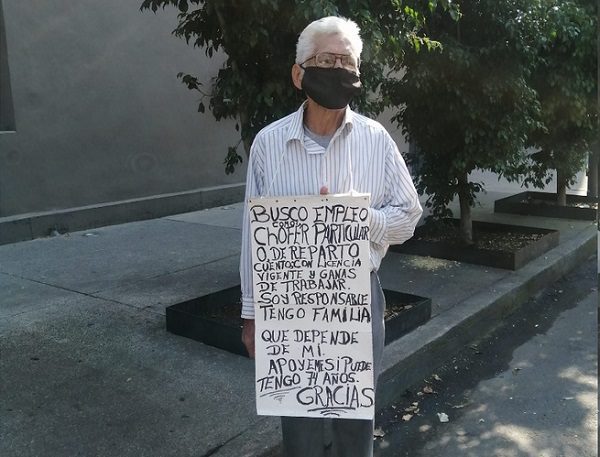 BUSCO EMPLEO
COMO
CHOFER PARTICULAR
O, DE REPARTO
CUENTO CON LICENCIA
VIGENTE Y GANAS
DE TRABAJAR.
SOY RESPONSABLE
TENGO FAMILIA
QUE DEPENDE
DE MÍ.
APOYEME SI PUEDE
TENGO 74 AÑOS.
GRACIAS